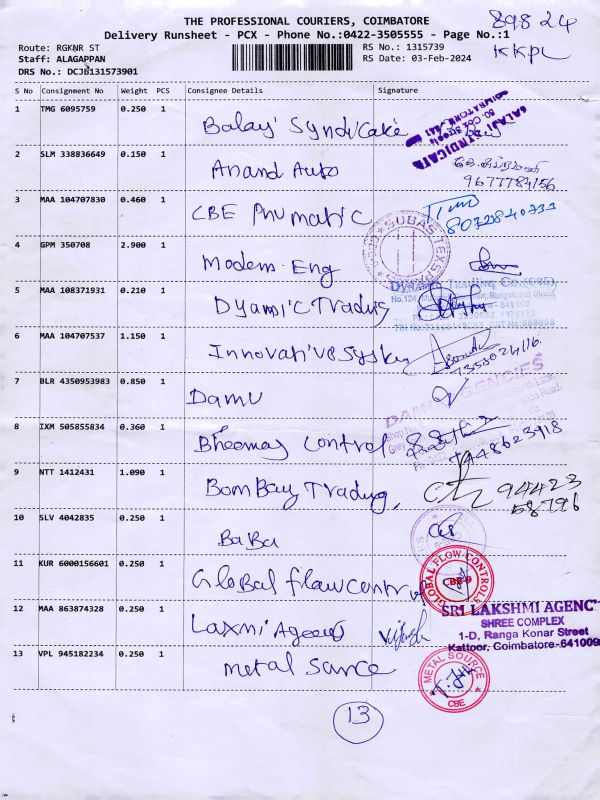 THE PROFESSIONAL COURIERS, COIMBATORE
89824
Delivery Runsheet - PCX - Phone No.:0422-3505555 - Page No.:1
KKPL
Route: RGKNR ST
RS No.: 1315739
Staff: ALAGAPPAN
RS Date: 03-Feb-2024
DRS No.: DCJB131573901
S No Consignment No Weight PCS Consignee Details Signature
1 TMG 6095759 0.250 1
Balaji Syndicate
2 SLM 338836649 0.150 1
Anand Auto
9677784156
3 MAA 104707830 0.460 1
CBE Phumatic
SUBAS TEXS
4 GPM 350708 2.900 1
Modern Eng
5 MAA 108371931 0.210 1
Dyamic Trading
6 MAA 104707537 1.150 1
Innovative System
7 BLR 4350953983 0.850 1
Damu
8 IXM 505855834 0.360 1
Bheemas control
7448623918
9 NTT 1412431 1.090 1
BomBay Trading,
94423
58796
10 SLV 4042835 0.250 1
BaBa
11 KUR 6000156601 0.250 1
Global flow control
GLOBAL FLOW CONTROLS
12 MAA 863874328 0.250 1
Laxmi Agency
SRI LAKSHMI AGENC
SHREE COMPLEX
1-D, Ranga Konar Street
Kattoor, Coimbatore-641009
13 VPL 945182234 0.250 1
metal Source
METAL SOURCE
CBE
13